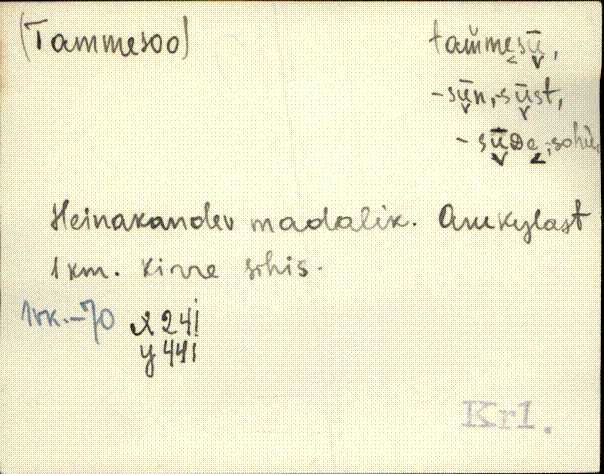 (Tammesoo)
tam̆mesū,
-sūn, -sūst,
-sūDe, -sohü
Heinakandev madalik.
1 km. kirre sihis.
1kk.-70
x 241
y 441
Kr1.